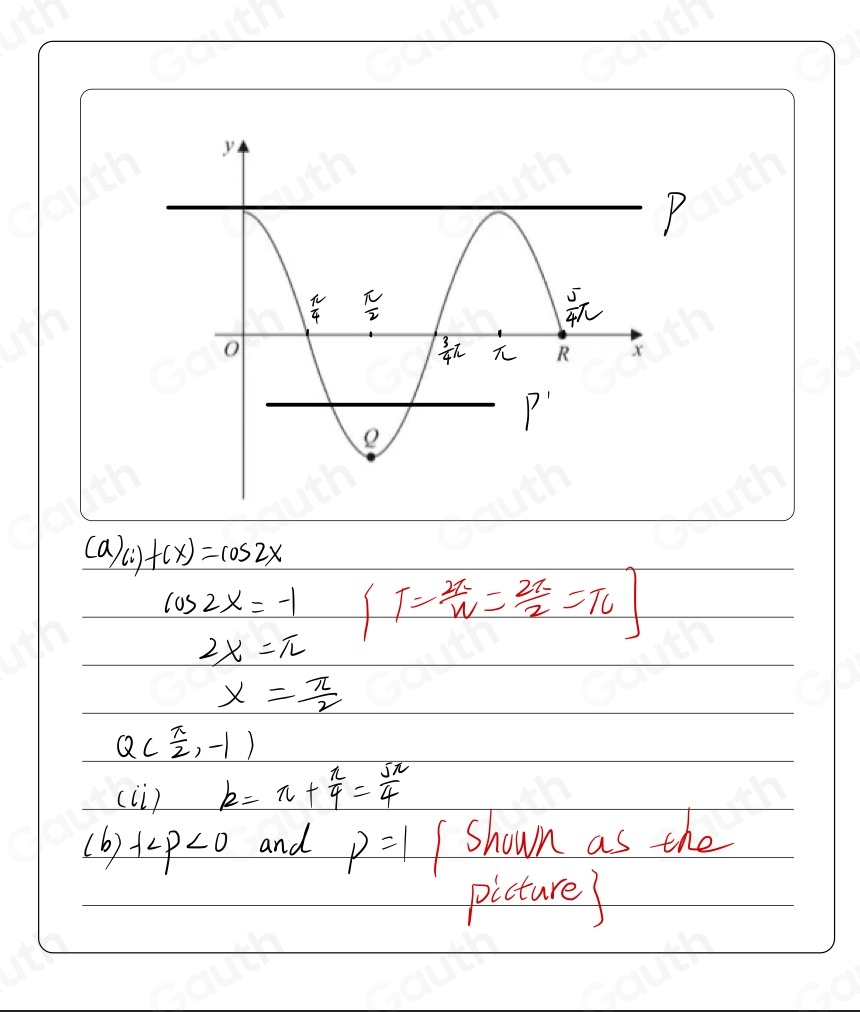 y
P
π/4 π/2 5/4π
O 3/4π π R x
P'
Q
(a)(i) f(x) = cos2x
cos2x = -1 { T = 2π/w = 2π/2 = π }
2x = π
x = π/2
Q(π/2, -1)
(ii) k = π + π/4 = 5π/4
(b) -1<p<0 and p=1 { Shown as the
picture }
Gauth